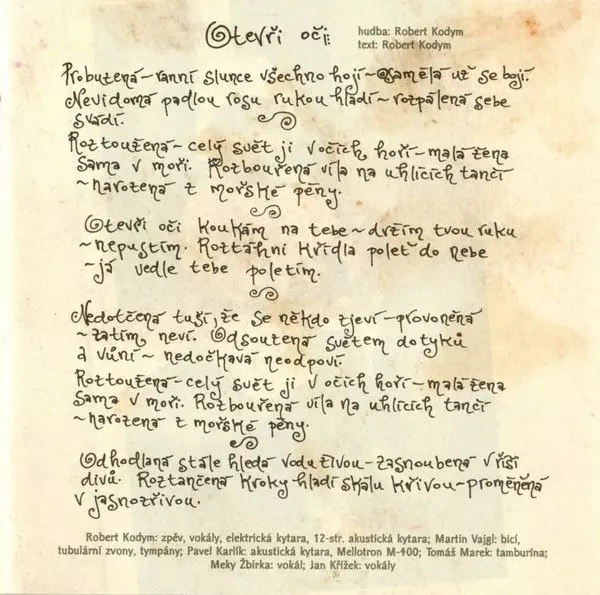 Otevři oči:
hudba: Robert Kodym
text: Robert Kodym
Probuzená~ranní slunce všechno hojí~osamělá už se bojí.
Nevidomá padlou rosu rukou hladí~rozpálená sebe
svádí.
Roztoužená~celý svět jí v očích hoří~malá žena
sama v moři. Rozbouřená víla na uhlících tančí
~narozená z mořské pěny.
Otevři oči koukám na tebe~držím tvou ruku
~nepustím. Roztáhni křídla poleť do nebe
~já vedle tebe poletím.
Nedotčená tuší, že se někdo zjeví~provoněná
~zatím neví. Odsouzená světem dotyků
a vůní~nedočkavá neodpoví.
Roztoužená~celý svět jí v očích hoří~malá žena
sama v moři. Rozbouřená víla na uhlících tančí
~narozená z mořské pěny.
Odhodlaná stále hledá vodu živou~zasnoubená v říši
divů. Roztančená kroky hladí skálu křivou~proměněná
v jasnozřivou.
Robert Kodym: zpěv, vokály, elektrická kytara, 12-str. akustická kytara; Martin Vajgl: bicí,
tubulární zvony, tympány; Pavel Karlík: akustická kytara, Mellotron M-400; Tomáš Marek: tamburína;
Meky Žbirka: vokál; Jan Křížek: vokály